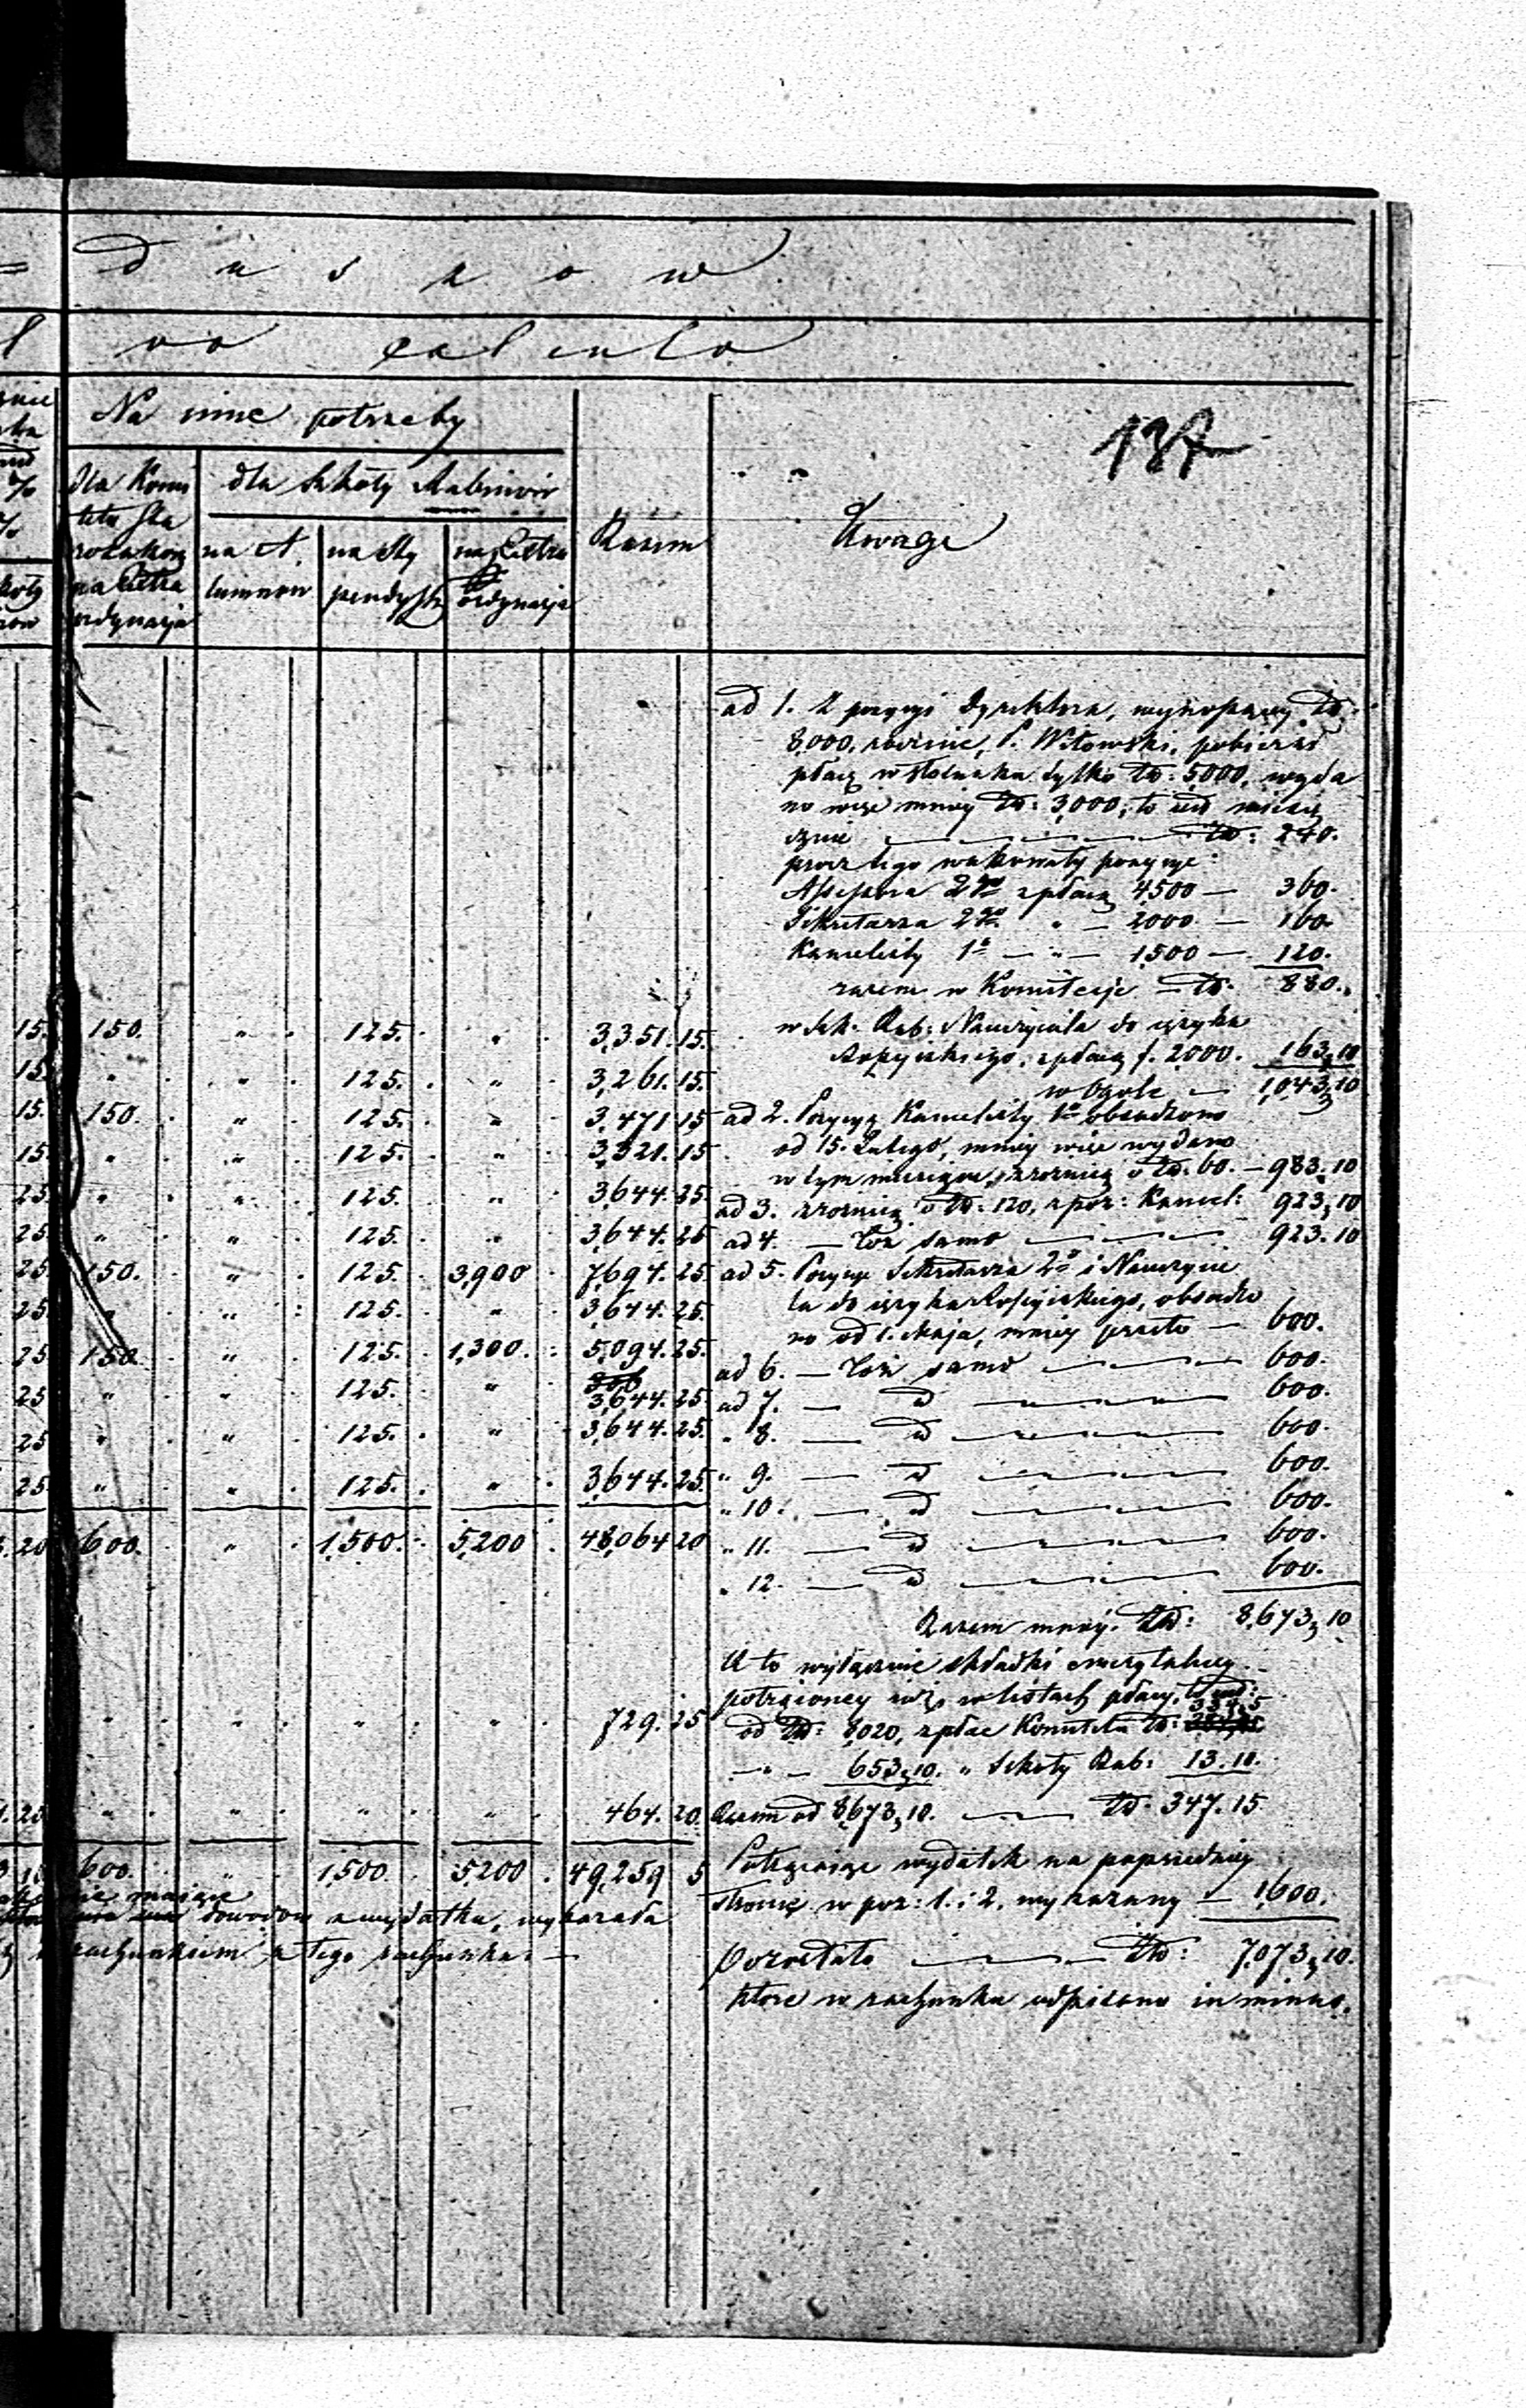 d u s z o w
Na inne potrzeby
137
dla Komi
dla Szkoły Rabinów
tetu Sta
rozakon
na Extra
ordynarja
na A
lumnow
na Sty
pendysta
na Extra
ordynarja
Razem
Uwagi
15. 150. " 125. " 3,351. 15.
15. " " 125. " 3,261. 15.
15. 150. " 125. " 3,471 15
15. " " 125. " 3,321. 15
25. " " 125. " 3,644. 25.
25. " " 125. " 3,644. 25
25. 150. " 125. 3,900 7,694. 25.
25. " " 125. " 3,644. 25.
25. 150 " 125. 1,300. 5,094. 25.
25 " " 125. " 3,644. 25
25 " " 125. " 3,644. 25.
25 " " 125. " 3,644. 25.
20 600. " 1,500. 5,200 48,064 20
" " " " 729. 15
" " " " 464. 20.
600. " 1,500 5,200 49,259 5
dowodow z wydatku, wykazała
rachunkiem z tego rachunku. —
ad 1. Z pozycyi Dyrektora, wynoszącey zł:
8,000, rocznie, P. Witowski, pobierał
płacę w stosunku tylko zł: 5,000, wyda
no więc mniey zł: 3,000, to iest miesię
cznie — zł: 240.
procz tego wakowały pozycye:
Assessora 2go z płacą 4,500 — 360.
Sekretarza 2go " — 2000 — 160
Kancelisty 1o — " — 1,500 — 120.
razem w Komitecie — zł: 880.
w Szk. Rab: Nauczyciela do ięzyka
Rossyiskiego, z płacą f. 2,000. 163,10
w Ogole — 1,043,10
ad 2. Pozycyę Kancelisty 1o obsadzono
od 15. Lutego, mniey więc wydano
w tym miesiącu, z roznicą o zł. 60. — 983.10
ad 3. z roznicą o zł. 120, z poz: Kancel: 923,10
ad 4. — toż samo — 923.10
ad 5. Pozycye Sekretarza 2o i Nauczycie
la do ięzyka Rossyiskiego, obsadzo
no od 1. Maja, mniey przeto — 600.
ad 6. — toż samo — 600.
ad 7. — d — 600.
" 8. — d — 600.
" 9. — d — 600.
" 10. — d — 600.
" 11. — d — 600.
" 12. — d — 600.
Razem mniey. Zł: 8,673,10
A to wyłącznie składki emerytalney
potrąconey iuż w listach płacy, to iest:
od zł: 8,020, z płac Komitetu zł: 334,5
— " — 653,10. " Szkoły Rab: 13.10.
Razem od 8,673,10. — zł. 347.15
Potrącaiąc wydatek na poprzedniey
stronie w poz: 1. i 2. wykazany — 1,600.
Pozostało — Zł: 7,073,10.
ktore w rachunku odpisano in minus.